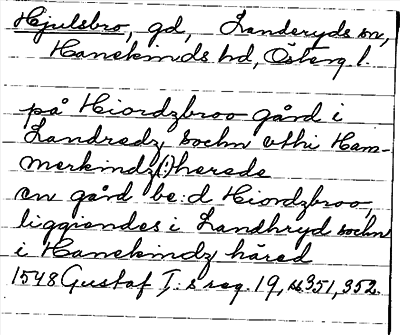 Hjulsbro, gd, Landeryds sn,
Hanekinds hd, Österg. l.
på Hiordzbroo gård i
Landredz sochn vthi Ham-
merkindz(!)herede
en gård be:d Hiordzbroo,
liggiendes i Landhryd sochn
i Hanekindz häred
1548 Gustaf I:s reg. 19, s. 351, 352.